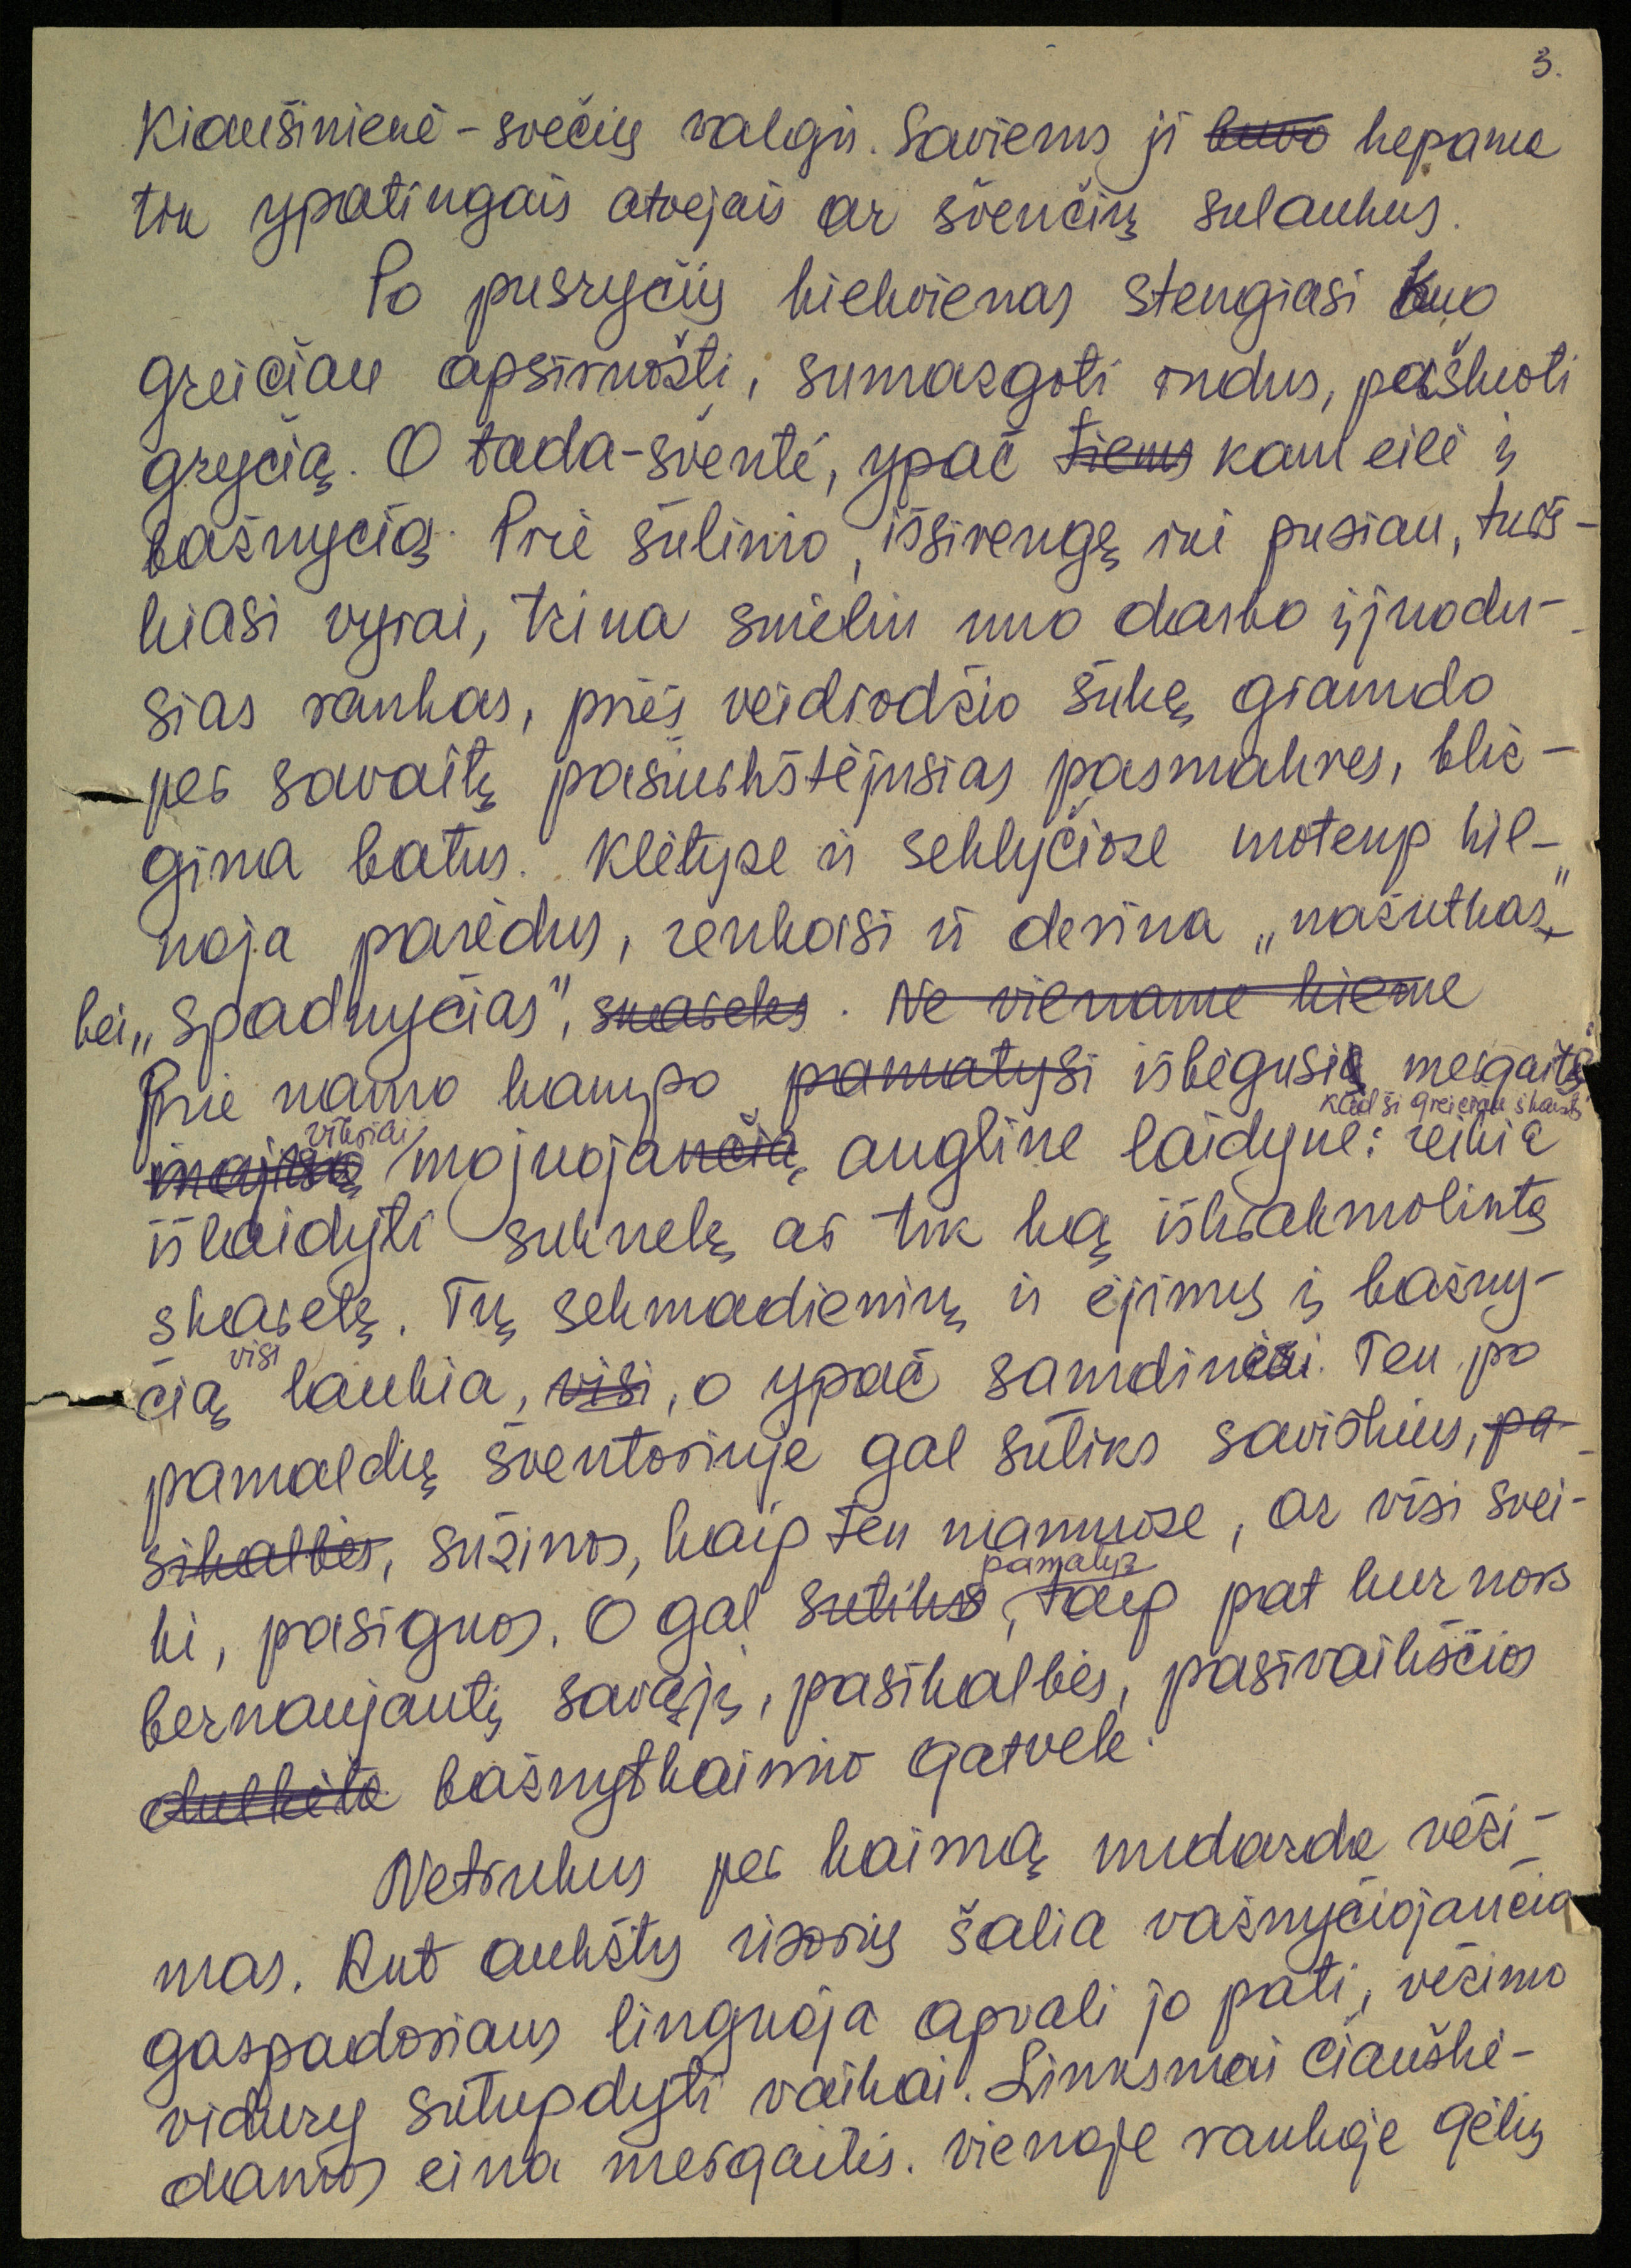 3.
Kiaušinienė - svečių valgis. Saviems ji buvo kepama
tik ypatingais atvejais ar švenčių sulaukus.
Po pusryčių kiekvienas stengiasi kuo
greičiau apsiruošti, sumazgoti indus, pašluoti
gryčią. O tada - šventė, ypač tiems kam eilė į
bažnyčią. Prie šulinio, išsirengę iki pusiau, turš-
kiasi vyrai, trina smėliu nuo darbo įjuodu-
sias rankas, prieš veidrodžio šukę gramdo
per savaitę pašiurkštėjusias pasmakres, bliz-
gina batus. Klėtyse ir seklyčiose moterys kil-
noja parėdus, renkasi ir derina „nažutkas"
bei „spadnyčias", skareles. Ne viename kieme
Prie namo kampo pamatysi išbėgusią mergaitę
kad ši greičiau įkaistų
vikriai
mojuojančią angline laidyne: reikia
išlaidyti suknelę ar tik ką iškrakmolintą
skarelę. Tų sekmadienių ir ėjimų į bažny-
visi
čią laukia, visi, o ypač samdiniai. Ten po
pamaldų šventoriuje gal sutiks saviškius, pa-
sikalbės, sužinos, kaip ten namuose, ar visi svei-
pamatys
ki, pasiguos. O gal sutiks, taip pat kur nors
bernaujantį savąjį, pasikalbės, pasivaikščios
dulkėta bažnytkaimio gatvele.
Netrukus per kaimą nudarda veži-
mas. Ant aukštų sisorių šalia važnyčiojančio
gaspadoriaus linguoja apvali jo pati, vežimo
vidury sutupdyti vaikai. Linksmai čiauškė-
damos eina mergaitės. Vienoje rankoje gėlių